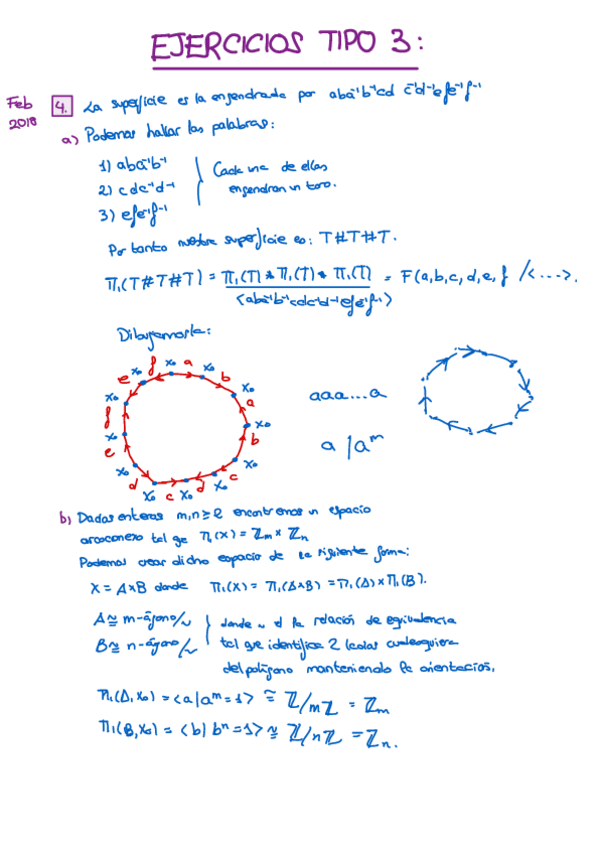 EJERCICIOS TIPO 3:
Feb 2018
4. La superficie es la engendrada por aba⁻¹b⁻¹cd c⁻¹d⁻¹efe⁻¹f⁻¹
a) Podemos hallar las palabras:
1) aba⁻¹b⁻¹
2) cdc⁻¹d⁻¹
3) efe⁻¹f⁻¹
Cada una de ellas
engendran un toro.
Por tanto nuestra superficie es: T#T#T.
Π₁(T#T#T) = Π₁(T) * Π₁(T) * Π₁(T) / <aba⁻¹b⁻¹cdc⁻¹d⁻¹efe⁻¹f⁻¹> = F(a,b,c,d,e,f) /<...>.
Dibujemosla:
x₀ f x₀ a x₀ b x₀ a x₀ b x₀ c x₀ d x₀ c x₀ d x₀ e x₀ f x₀ e
aaa...a
a | aᵐ
b) Dados enteros m,n≥2 encontremos un espacio
arcoconexo tal qe Π₁(X) = ℤm × ℤn
Podemos crear dicho espacio de la siguiente forma:
X = A×B donde Π₁(X) = Π₁(A×B) = Π₁(A) × Π₁(B).
A ≅ m-ágono/~
B ≅ n-ágono/~
donde ~ es la relación de equivalencia
tal qe identifica 2 lados cualesquiera
del polígono manteniendo la orientación.
Π₁(A,x₀) = <a|aᵐ=1> ≅ ℤ/mℤ = ℤm
Π₁(B,x₀) = <b|bⁿ=1> ≅ ℤ/nℤ = ℤn.